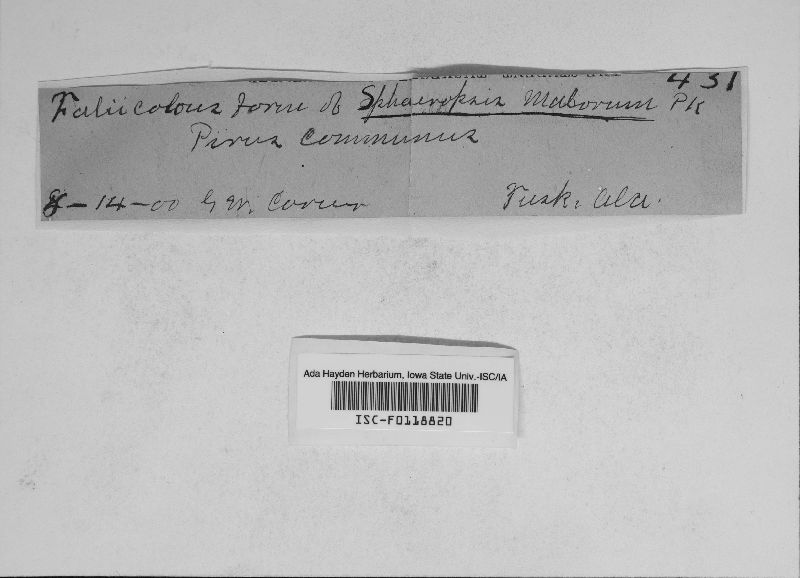 431
Foliicolous form of Sphaeropsis Malorum Pk
Pirus communus
8-14-00 G.W. Carver Tusk. Ala.
Ada Hayden Herbarium, Iowa State Univ.-ISC/IA
ISC-F0118820